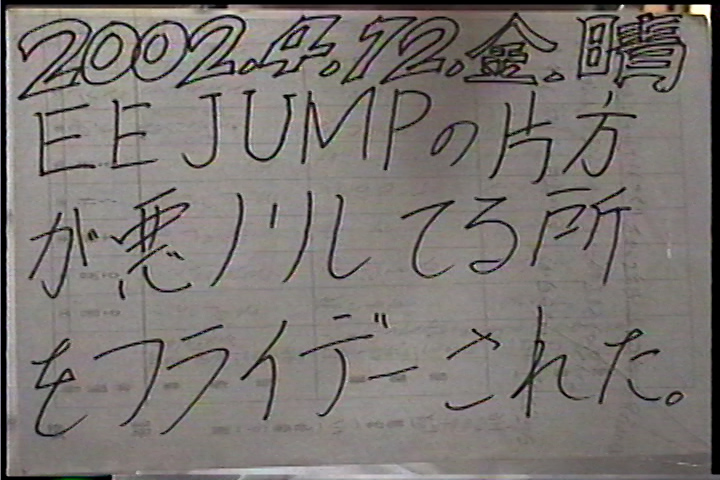 2002.4.12.金.晴
EE JUMPの片方
が悪ノリしてる所
をフライデーされた。